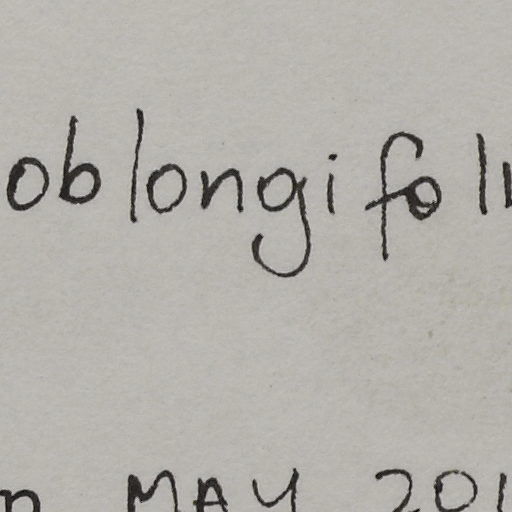 oblongifoli
n MAY 201